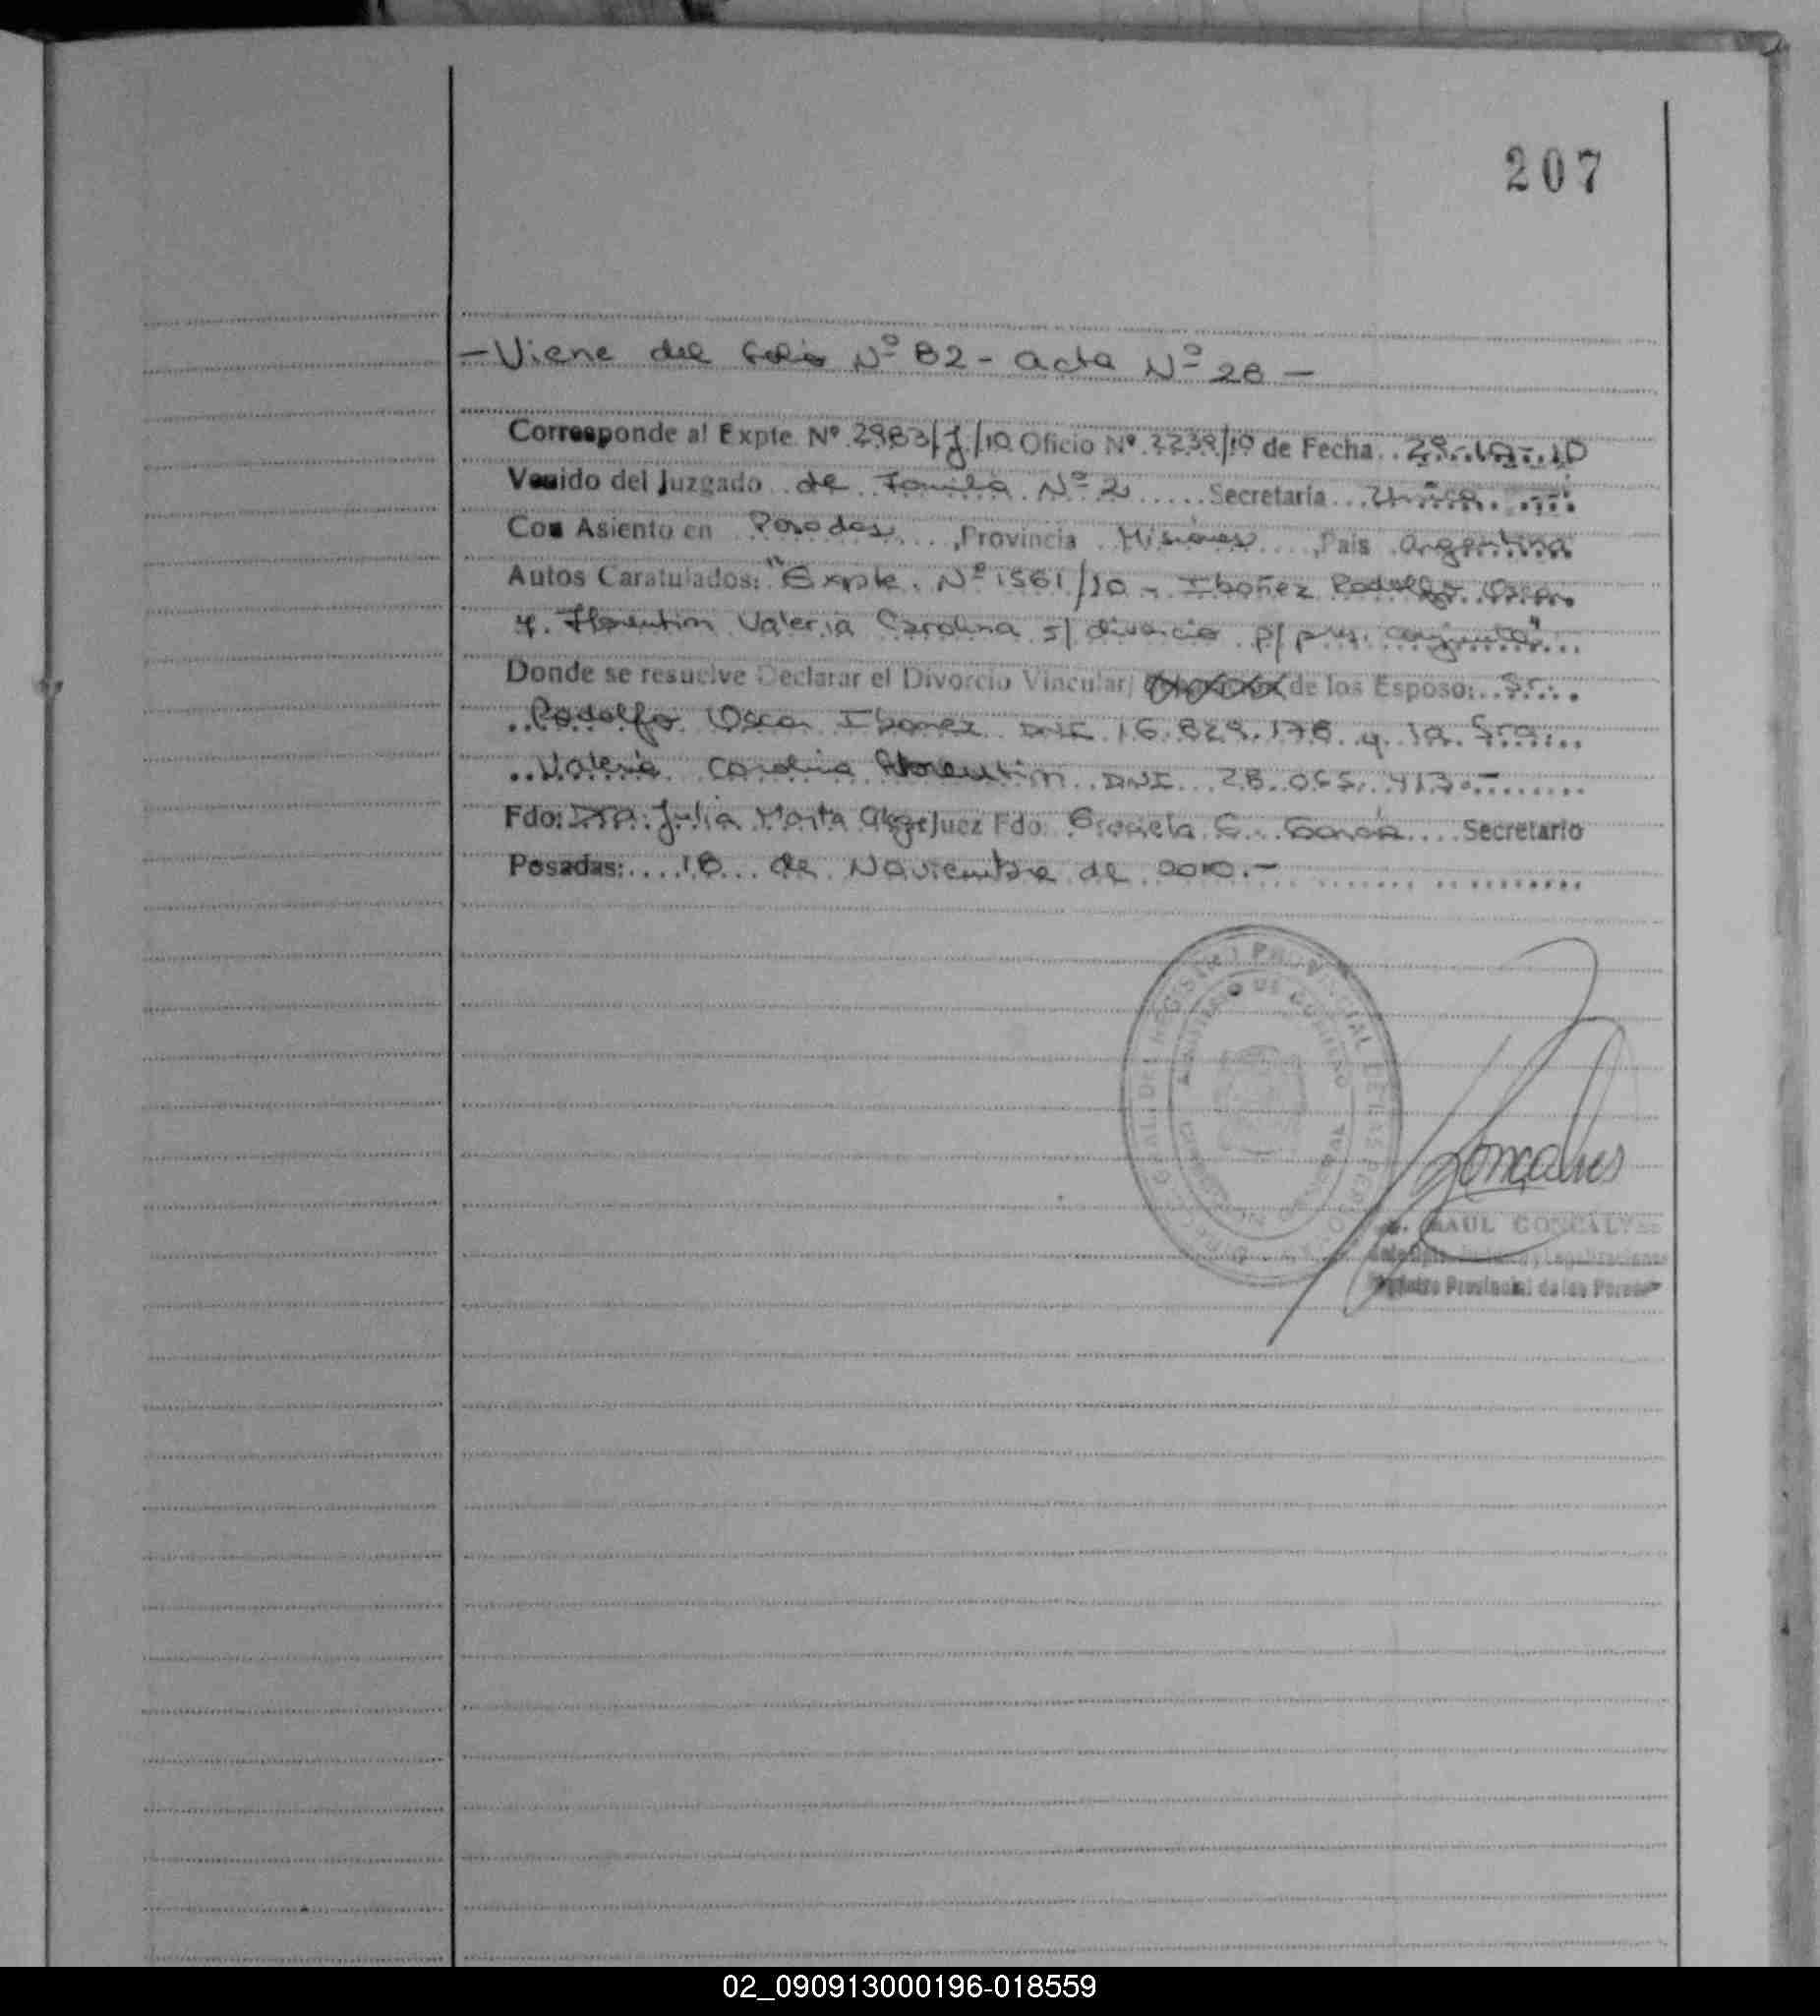 207
- Viene del folio Nº 82 - acta Nº 28 -
Corresponde al Expte Nº 2983/J/10 Oficio Nº 2239/10 de Fecha 29-10-10
Venido del Juzgado de Familia Nº 2 Secretaría Unica
Con Asiento en Posadas, Provincia Misiones, País Argentina
Autos Caratulados: "Expte. Nº 1561/10 - Ibañez Rodolfo Oscar
y Florentin Valeria Carolina s/ divorcio p/ pres. conjunta"
Donde se resuelve Declarar el Divorcio Vincular/ de los Esposo: Sr.
Rodolfo Oscar Ibañez DNI 16.829.178 y la Sra.
Valeria Carolina Florentin DNI 28.065.413.-
Fdo: Dra. Julia Marta Juez Fdo. Graciela G. Garcia Secretario
Posadas: 18 de Noviembre de 2010.-
REGISTRO PROVINCIAL DE LAS PERSONAS
MINISTERIO DE GOBIERNO
Goncalves
RAUL GONCALVES
Registro Provincial de las Personas
02_090913000196-018559